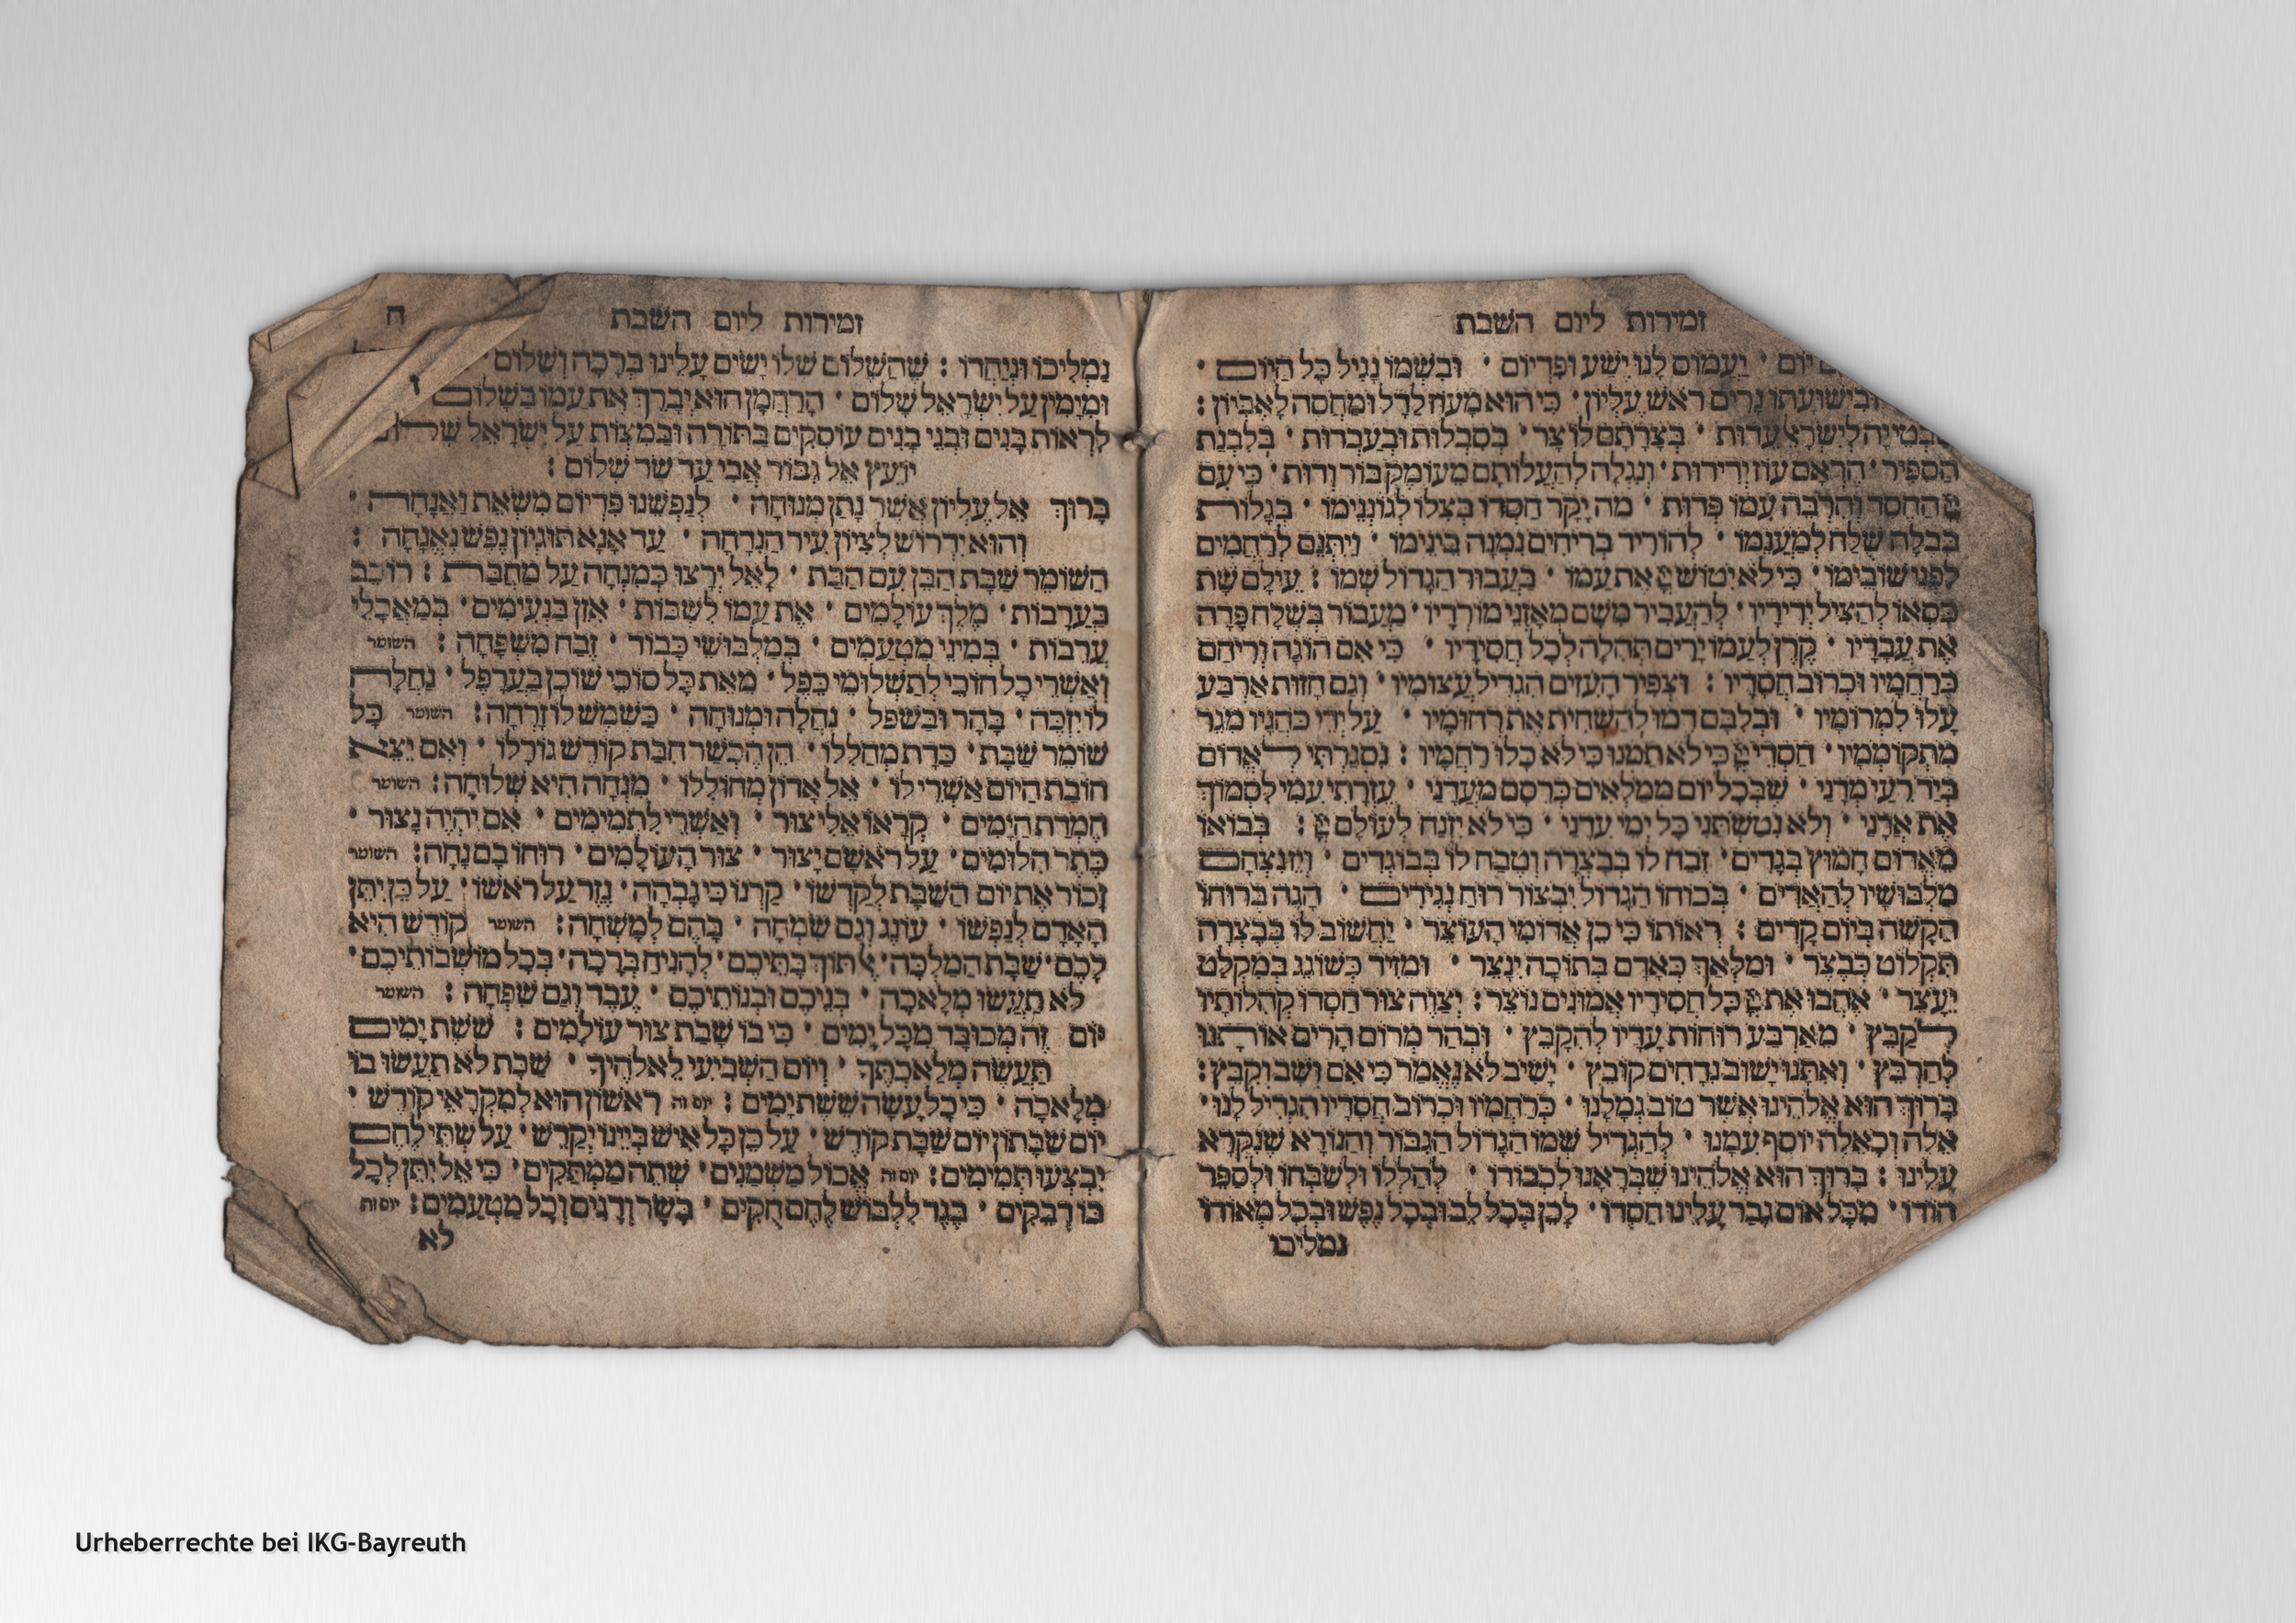 זמירות ליום השבת
יום · יעמוס לנו ישע ופדיום · ובשמו נגיל כל היום ·
ובישועתו נרים ראש עליון · כי הוא מעוז לדל ומחסה לאביון :
שבטי יה לישראל עדות · בצרתם לו צר · בסבלות ובעבדות · בלבנת
הספיר · הראם עוז ידידות · ונגלה להעלותם מעומק בור ודות · כי עם
יי החסד והרבה עמו פדות · מה יקר חסדו בצלו לגוננימו · בגלות
בבלה שלח למענמו · להוריד בריחים נמנה בינימו · ויתנם לרחמים
לפני שובימו · כי לא יטוש יי את עמו · בעבור הגדול שמו : עילם שת
כסאו להציל ידידיו · להעביר משם מאזני מורדיו · מעבור בשלח פדה
את עבדיו · קרן לעמו ירים תהלה לכל חסידיו · כי אם הוגה וריחם
כרחמיו וכרוב חסדיו : וצפיר העזים הגדיל עצומיו · וגם חזות ארבע
עלו למרומיו · ובלבם דמו להשחית את רחומיו · על ידי כהניו מגר
מתקוממיו · חסדי יי כי לא תמנו כי לא כלו רחמיו : נסגרתי לאדום
ביד רעי מדני · שבכל יום ממלאים כרסם מעדני · עזרתי עמי לסמוך
את אדני · ולא נטשתני כל ימי עדני · כי לא יזנח לעולם יי : בבואו
מאדום חמוץ בגדים · זבח לו בבצרה וטבח לו בבוגדים · ויז נצחם
מלבושיו להאדים · בכוחו הגדול יבצור רוח נגידים · הגה ברוחו
הקשה ביום קדים : ראותו כי כן אדומי העוצר · יחשוב לו בבצרה
תקלוט כבצר · ומלאך כאדם בתוכה ינצר · ומזיד כשוגג במקלט
יעצר · אהבו את יי כל חסידיו אמונים נוצר : יצוה צור חסדו קהלותיו
לקבץ · מארבע רוחות עדיו להקבץ · ובהר מרום הרים אותנו
להרבץ · ואתנו ישוב נדחים קובץ · ישיב לא נאמר כי אם ושב וקבץ :
ברוך הוא אלהינו אשר טוב גמלנו · כרחמיו וכרוב חסדיו הגדיל לנו ·
אלה וכאלה יוסף עמנו · להגדיל שמו הגדול הגבור והנורא שנקרא
עלינו : ברוך הוא אלהינו שבראנו לכבודו · להללו ולשבחו ולספר
הודו · מכל אום גבר עלינו חסדו · לכן בכל לב ובכל נפש ובכל מאודו
נמליכו
זמירות ליום השבת ח
נמליכו וניחדו : שהשלום שלו ישים עלינו ברכה ושלום ·
ומימין על ישראל שלום · הרחמן הוא יברך את עמו בשלום ז
לראות בנים ובני בנים עוסקים בתורה ובמצות על ישראל
יועץ אל גבור אבי עד שר שלום :
ברוך אל עליון אשר נתן מנוחה · לנפשנו פדיום משאת ואנחה ·
והוא ידרוש לציון עיר הנדחה · עד אנא תוגיון נפש נאנחה :
השומר שבת הבן עם הבת · לאל ירצו כמנחה על מחבת : רוכב
בערבות · מלך עולמים · את עמו לשבות · אזן בנעימים · במאכלי
ערבות · במיני מטעמים · במלבושי כבוד · זבח משפחה : השומר
ואשרי כל חוכי לתשלומי כפל · מאת כל סוכי שוכן בערפל · נחלה
לו יזכה · בהר ובשפל · נחלה ומנוחה · כשמש לו זרחה : השומר כל
שומר שבת · כדת מחללו · הן הכשר חבת קודש גורלו · ואם יצא
חובת היום אשרי לו · אל אדון מחוללו · מנחה היא שלוחה : השומר
חמדת הימים · קראו אלי צור · ואשרי לתמימים · אם יהיה נצור ·
כתר הלומים · על ראשם יצור · צור העולמים · רוחו בם נחה : השומר
זכור את יום השבת לקדשו · קרנו כי גבהה · נזר על ראשו · על כן יתן
האדם לנפשו · עונג וגם שמחה · בהם למשחה : השומר קודש היא
לכם · שבת המלכה · אל תוך בתיכם · להניח ברכה · בכל מושבותיכם ·
לא תעשו מלאכה · בניכם ובנותיכם · עבד וגם שפחה : השומר
יום זה מכובד מכל ימים · כי בו שבת צור עולמים : ששת ימים
תעשה מלאכתך · ויום השביעי לאלהיך · שבת לא תעשו בו
מלאכה · כי כל עשה ששת ימים : יום זה ראשון הוא למקראי קודש ·
יום שבתון יום שבת קודש · על כן כל איש ביינו יקדש · על שתי לחם
יבצעו תמימים : יום זה אכול משמנים · שתה ממתקים · כי אל יתן לכל
בו דבקים · בגד ללבוש לחם חוקים · בשר ודגים וכל מטעמים : יום זה
לא
Urheberrechte bei IKG-Bayreuth